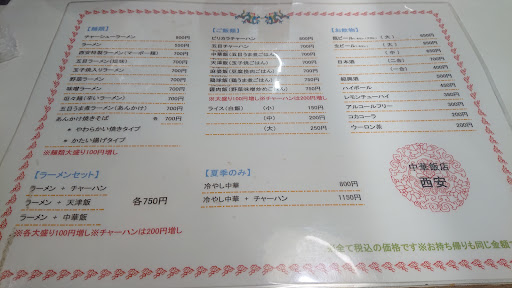 【麺類】
チャーシューラーメン 800円
ラーメン 500円
西安特製ラーメン(マーボー麺) 700円
五目ラーメン(塩味) 700円
玉子焼入りラーメン 700円
野菜ラーメン 700円
味噌ラーメン 700円
坦々麺(辛いラーメン) 700円
五目うま煮ラーメン(あんかけ) 700円
あんかけ焼きそば 各 700円
＊ やわらかい焼きタイプ
＊ かたい揚げタイプ
※麺類大盛り100円増し
【ご飯類】
ピリカラチャーハン 700円
五目チャーハン 700円
中華飯(五目うま煮ごはん) 700円
天津飯(玉子焼ごはん) 700円
麻婆飯(豆腐挽肉ごはん) 700円
鶏球飯(鶏うま煮ごはん) 700円
醤肉飯(野菜味噌炒めごはん) 700円
※大盛り100円増し※チャーハンは200円増し
ライス(白飯) (小) 150円
(中) 200円
(大) 250円
【お飲物】
瓶ビール (大)
生ビール (大)
(中)
(小)
日本酒 (二合)
(一合)
紹興酒
ハイボール
レモンチューハイ
アルコールフリー
コカコーラ
ウーロン茶
【ラーメンセット】
ラーメン + チャーハン
ラーメン + 天津飯 各750円
ラーメン + 中華飯
※各大盛り100円増し※チャーハンは200円増し
【夏季のみ】
冷やし中華 800円
冷やし中華 + チャーハン 1150円
中華飯店
西安
全て税込の価格です※お持ち帰りも同じ金額